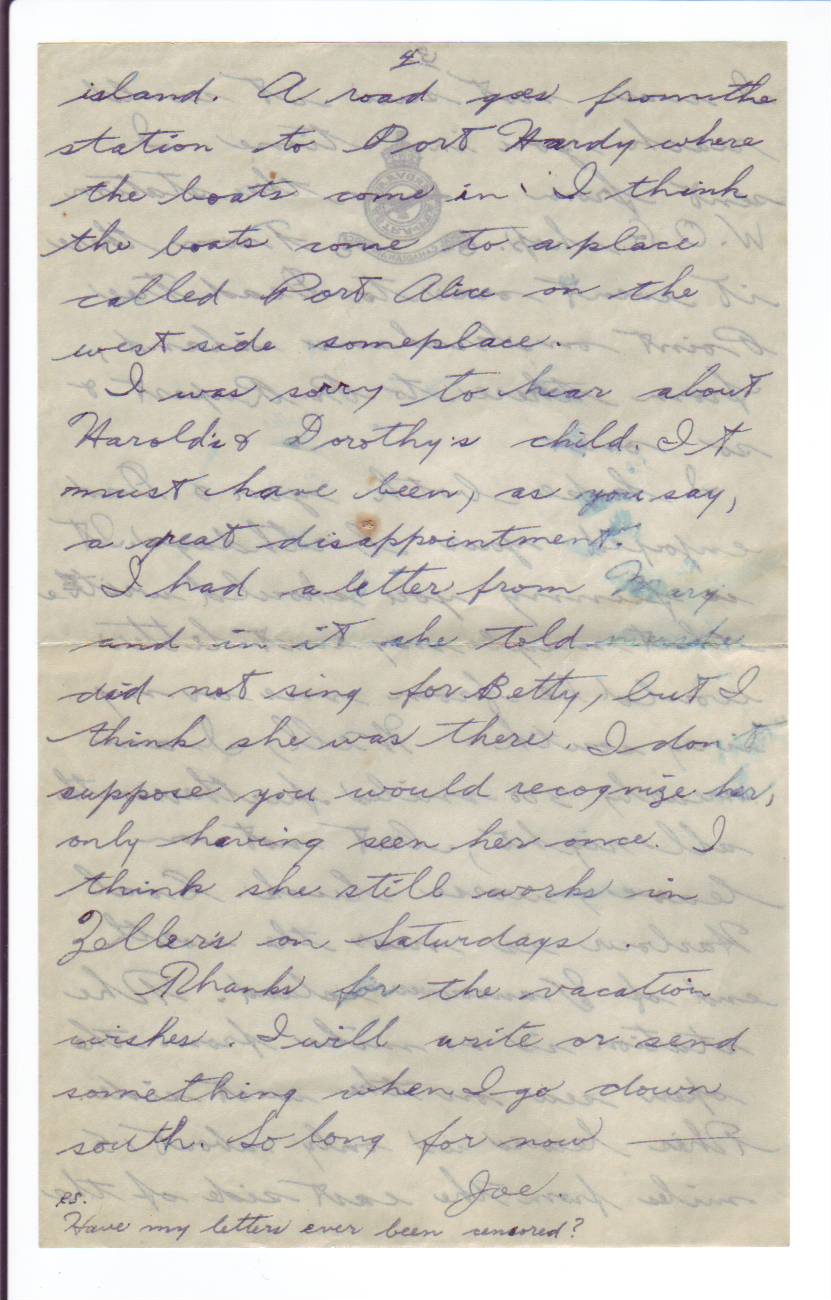 4
island. A road goes from the
station to Port Hardy where
the boats come in. I think
the boats come to a place
called Port Alice on the
west side someplace.
I was sorry to hear about
Harold's & Dorothy's child. It
must have been, as you say,
a great disappointment.
I had a letter from Mary
and in it she told me she
did not sing for Betty, but I
think she was there. I don't
suppose you would recognize her,
only having seen her once. I
think she still works in
Zeller's on Saturdays.
Thanks for the vacation
wishes. I will write or send
something when I go down
south. So long for now —
Joe.
P.S.
Have my letters ever been censored?